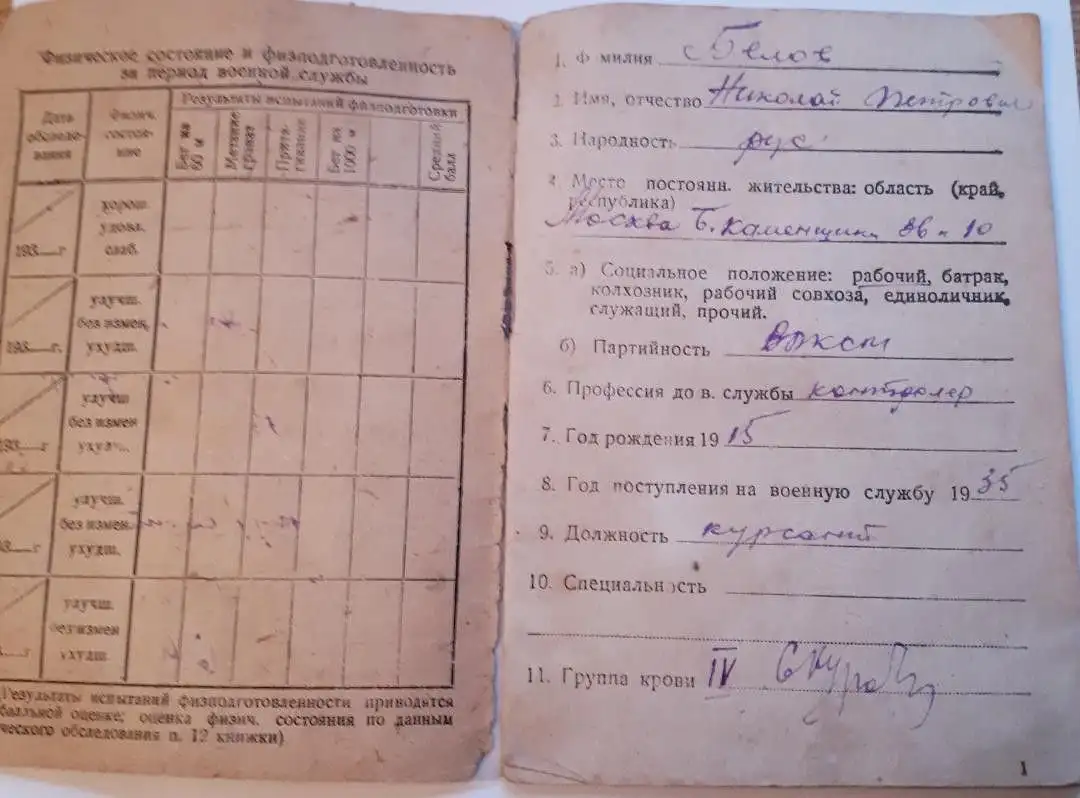 Физическое состояние и физподготовленность
за период военной службы
Дата обследования
Физич. состояние
Результаты испытаний физподготовки
Бег на 60 м
Метание гранат
Подтягивание
Бег на 1000 м
Средний балл
193 г
хорош.
удовл.
слаб.
193 г.
улучш.
без измен.
ухудш.
193 г
улучш
без измен
ухудш.
3 г
улучш.
без измен.
ухудш.
г
улучш.
без измен
ухудш.
Результаты испытаний физподготовленности приводятся
балльной оценке; оценка физич. состояния по данным
ческого обследования п. 12 книжки)
1. Ф милия Белов
2. Имя, отчество Николай Петрович
3. Народность рус
4. Место постоянн. жительства: область (край,
республика)
Москва Б. Каменщики 10
5. а) Социальное положение: рабочий, батрак,
колхозник, рабочий совхоза, единоличник,
служащий, прочий.
б) Партийность
6. Профессия до в. службы контролер
7. Год рождения 1915
8. Год поступления на военную службу 1935
9. Должность курсант
10. Специальность
11. Группа крови IV
1